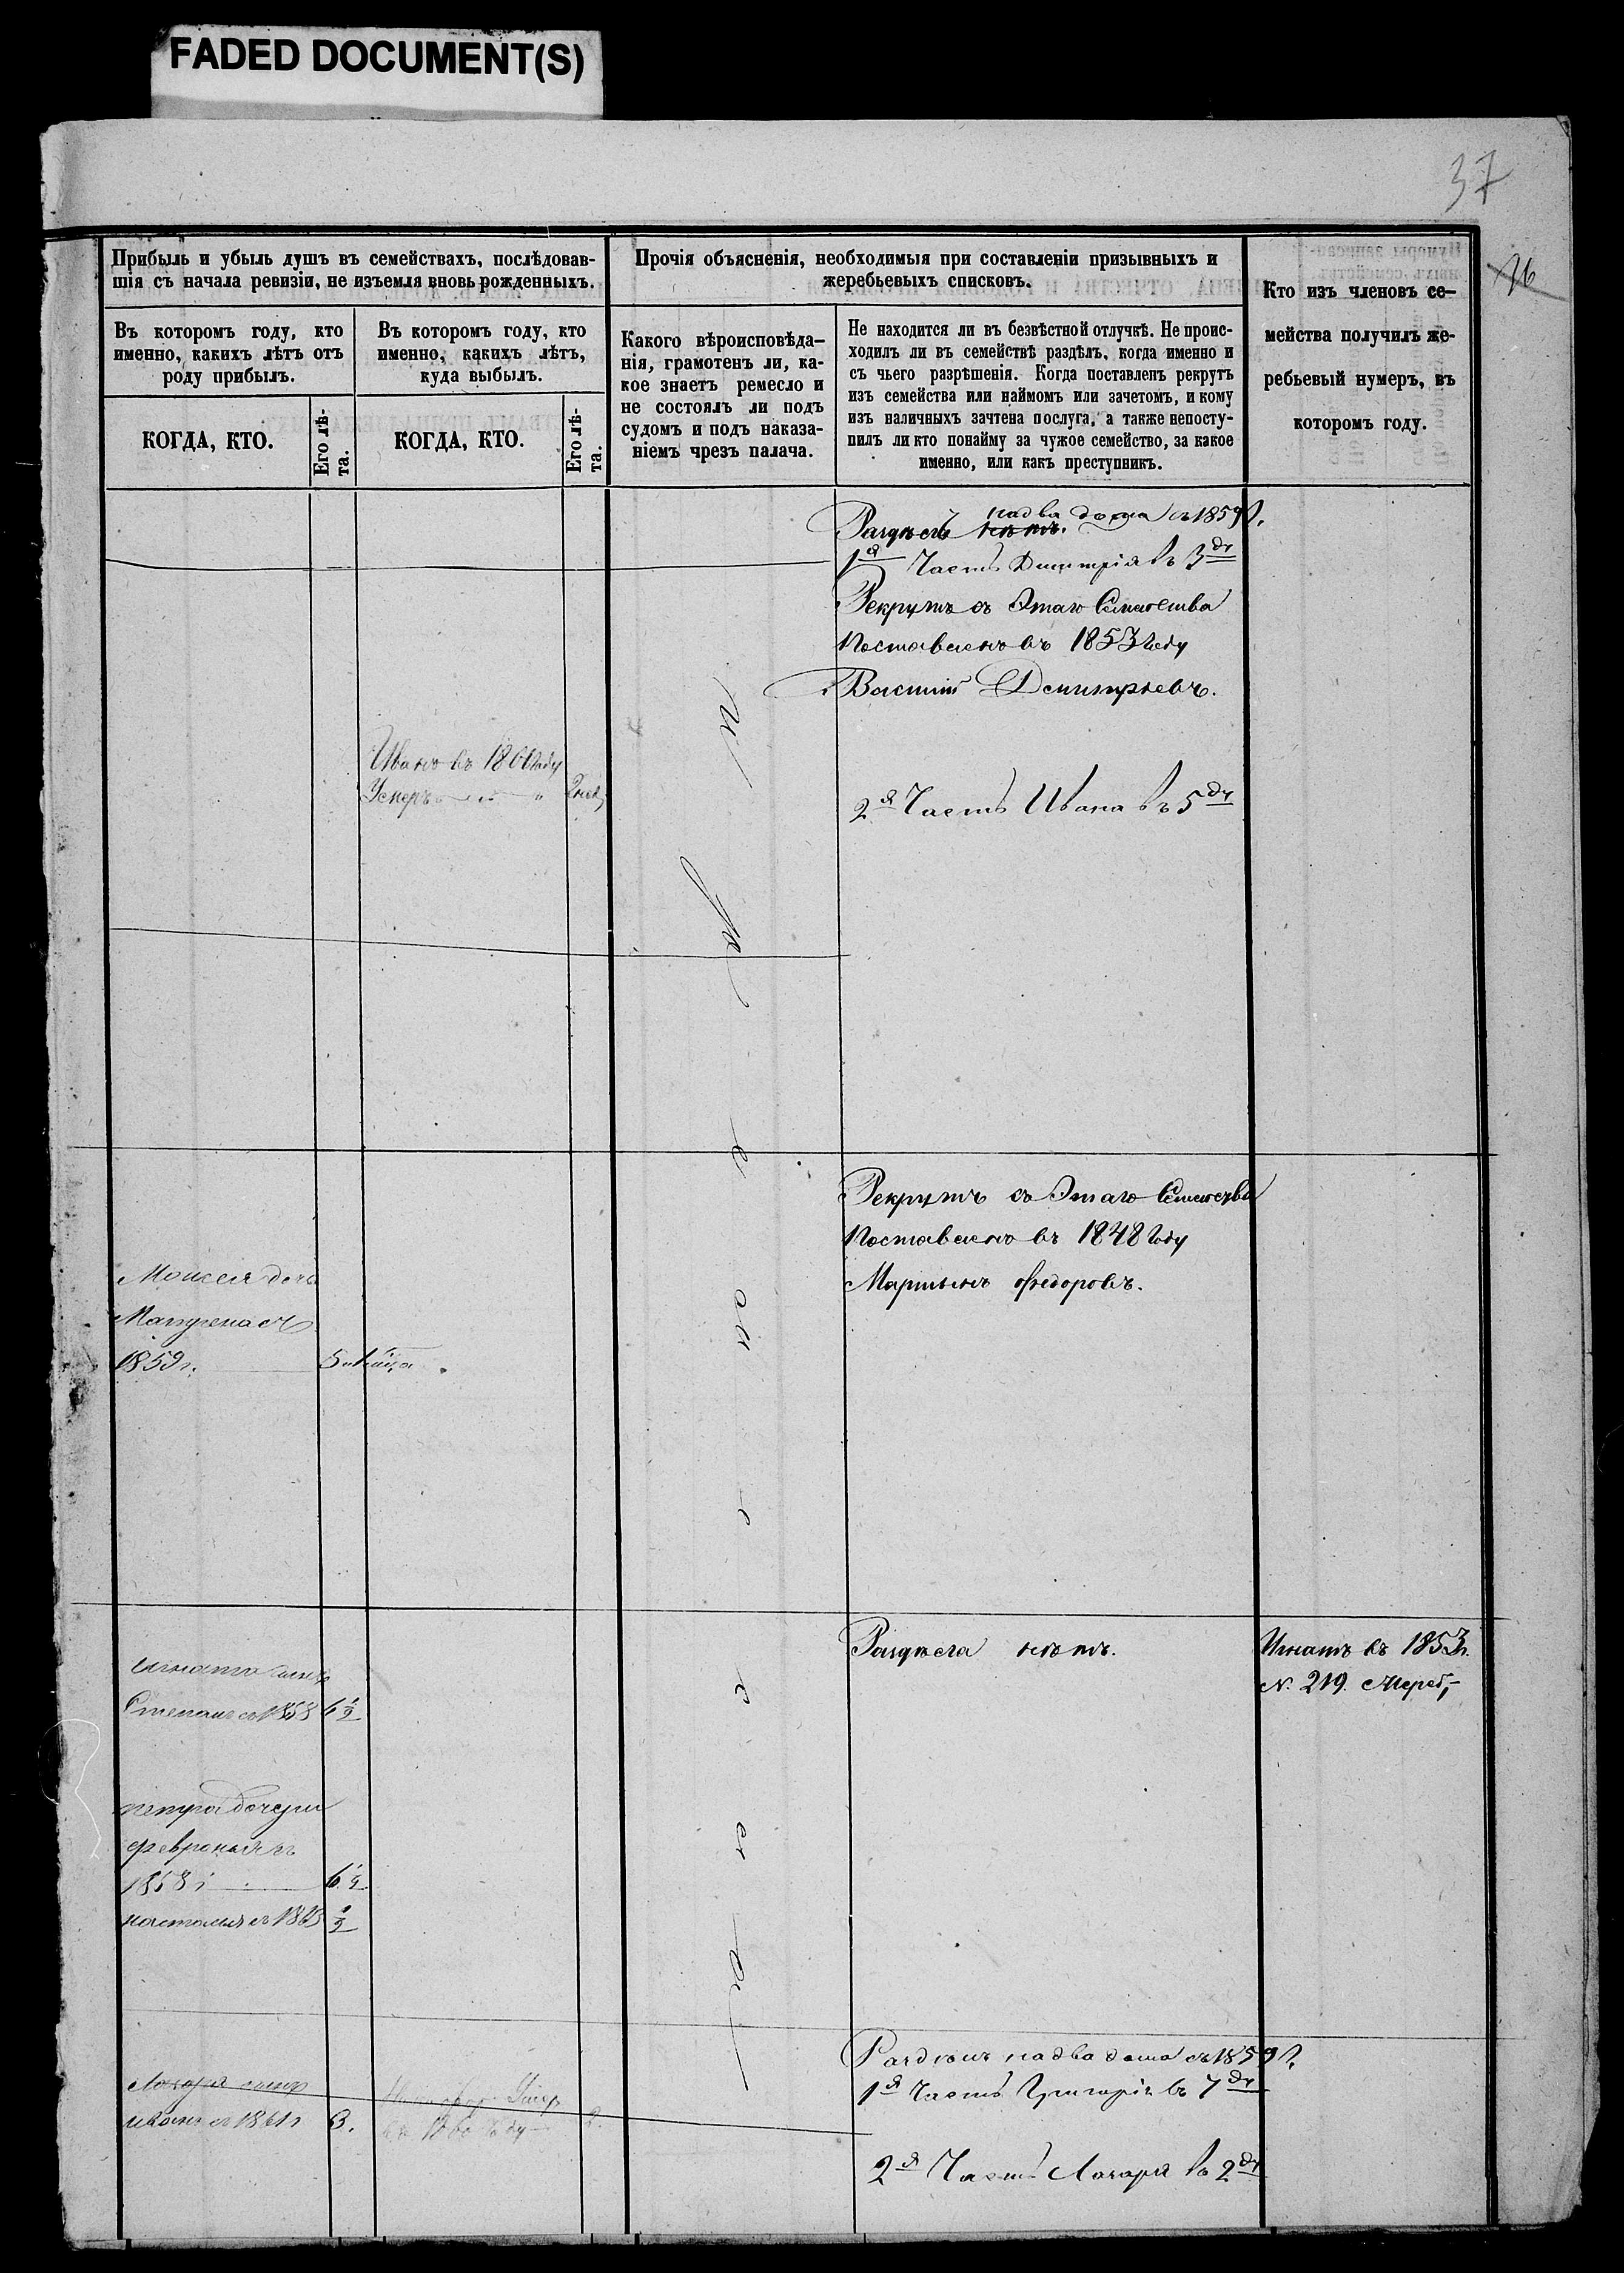 FADED DOCUMENT(S)
37
Прибыль и убыль душъ въ семействахъ, послѣдовав-
шія съ начала ревизіи, не изъемля вновь рожденныхъ.
Въ которомъ году, кто
именно, какихъ лѣтъ отъ
роду прибылъ.
КОГДА, КТО.
Его лѣ-
та.
Въ которомъ году, кто
именно, какихъ лѣтъ,
куда выбылъ.
КОГДА, КТО.
Его лѣ-
та.
Прочія объясненія, необходимыя при составленіи призывныхъ и
жеребьевыхъ списковъ.
Какого вѣроисповѣда-
нія, грамотенъ ли, ка-
кое знаетъ ремесло и
не состоялъ ли подъ
судомъ и подъ наказа-
ніемъ чрезъ палача.
Не находится ли въ безвѣстной отлучкѣ. Не проис-
ходилъ ли въ семействѣ раздѣлъ, когда именно и
съ чьего разрѣшенія. Когда поставленъ рекрутъ
изъ семейства или наймомъ или зачетомъ, и кому
изъ наличныхъ зачтена послуга, а также непосту-
пилъ ли кто понайму за чужое семейство, за какое
именно, или какъ преступникъ.
Кто изъ членовъ се-
мейства получилъ же-
ребьевый нумеръ, въ
которомъ году.
надва дома съ 1859 г.
Раздѣлъ нѣтъ.
1я Часть Димитрія въ 3
Рекрутъ съ Этаго Семейства
Поставленъ въ 1853 году
Василій Демитріевъ.
Иванъ въ 1860 году
Умеръ
2я Часть Ивана въ 5
Рекрутъ съ Этаго Семейства
Поставленъ въ 1848 году
Мартынъ Федоровъ.
Моисея дочь
1859 г.
Раздѣла нѣтъ.
Игнатъ въ 1853 г.
№ 219 Жереб,
Игната сынъ
Степанъ съ 1858 6 1/2
Петра дочери
февронія съ
1858 г 6 1/2
настасия съ 1863 1/2
Раздѣлъ надва дома съ 1859 г.
1я Часть Григорія въ 7
Лазаря сынъ
иванъ съ 1861 г 3.
въ 1860 году 2.
2я Часть Лазаря въ 2